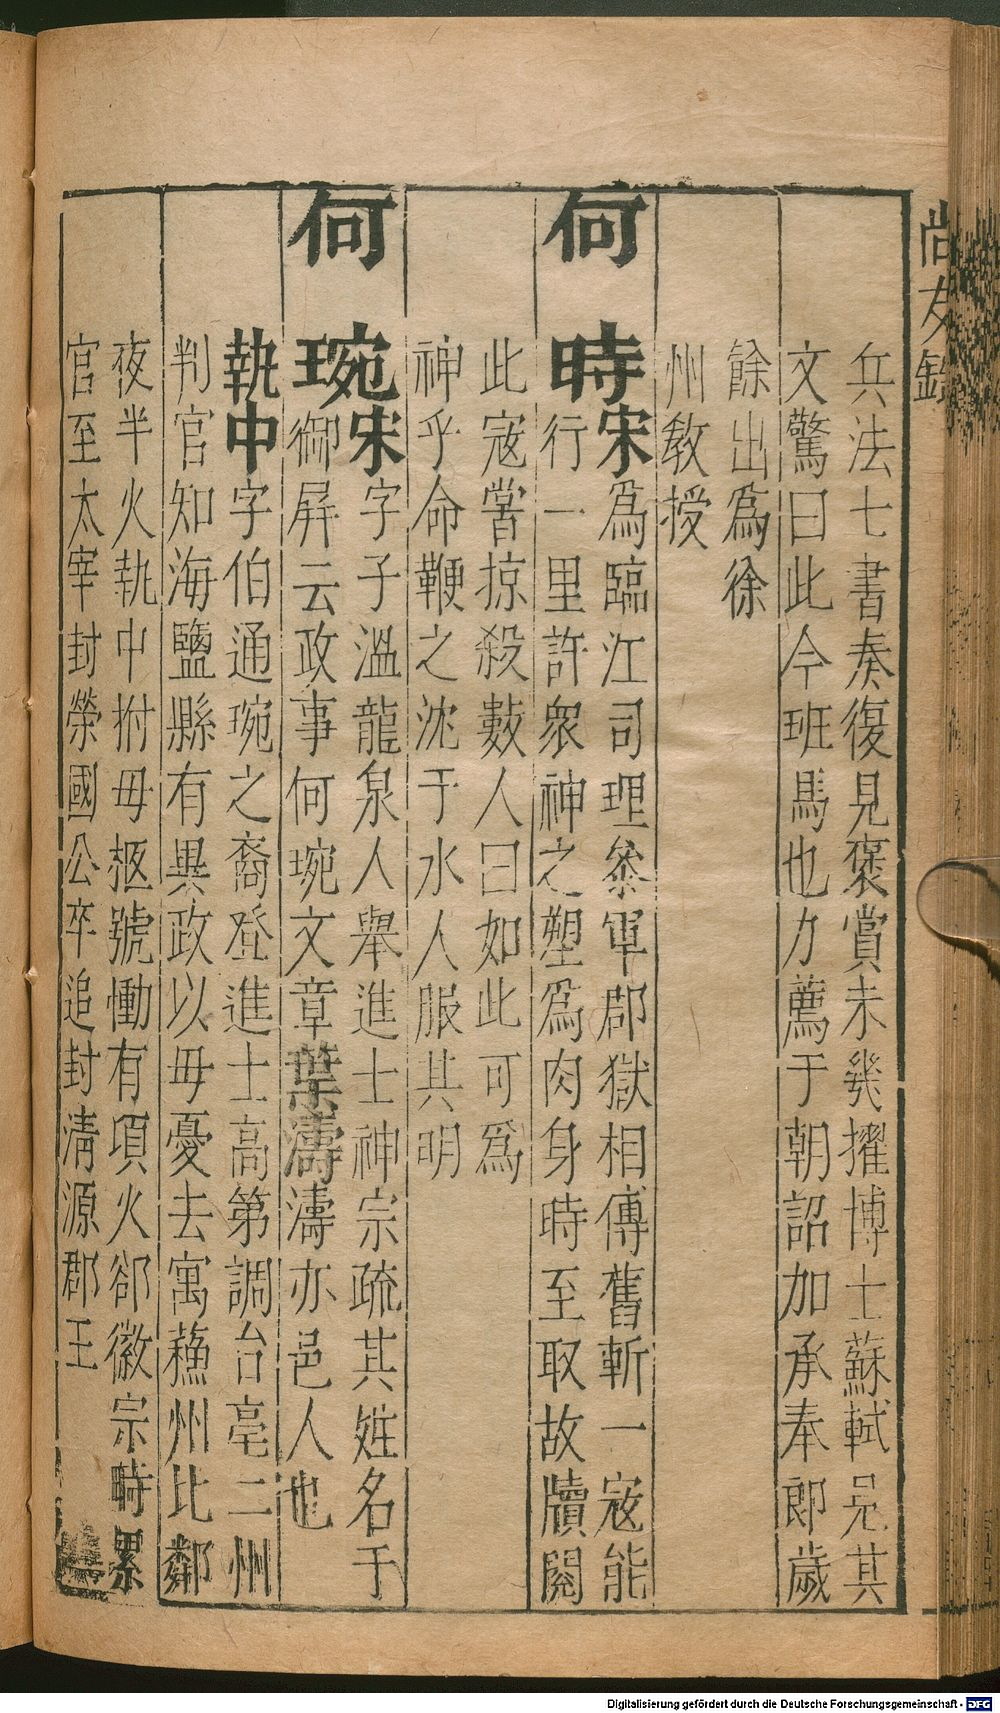 尚友錄
兵法七書奏復見褒賞未幾擢博士蘇軾見其
文驚曰此今班馬也力薦于朝詔加承奉郎歲
餘出爲徐
州教授
何時宋爲臨江司理叅軍郡獄相傳舊斬一寇能
行一里許衆神之塑爲肉身時至取故牘閱
此寇嘗掠殺數人曰如此可爲
神乎命鞭之沈于水人服其明
何琬宋字子溫龍泉人舉進士神宗疏其姓名于
御屏云政事何琬文章葉濤濤亦邑人也
執中字伯通琬之裔登進士高第調台亳二州
判官知海鹽縣有異政以母憂去寓蘓州比鄰
夜半火執中拊母柩號慟有項火郤徽宗時累
官至太宰封榮國公卒追封淸源郡王
Digitalisierung gefördert durch die Deutsche Forschungsgemeinschaft - DFG